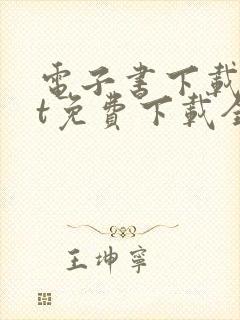 電子書下載
t免費下載全
王坤寧